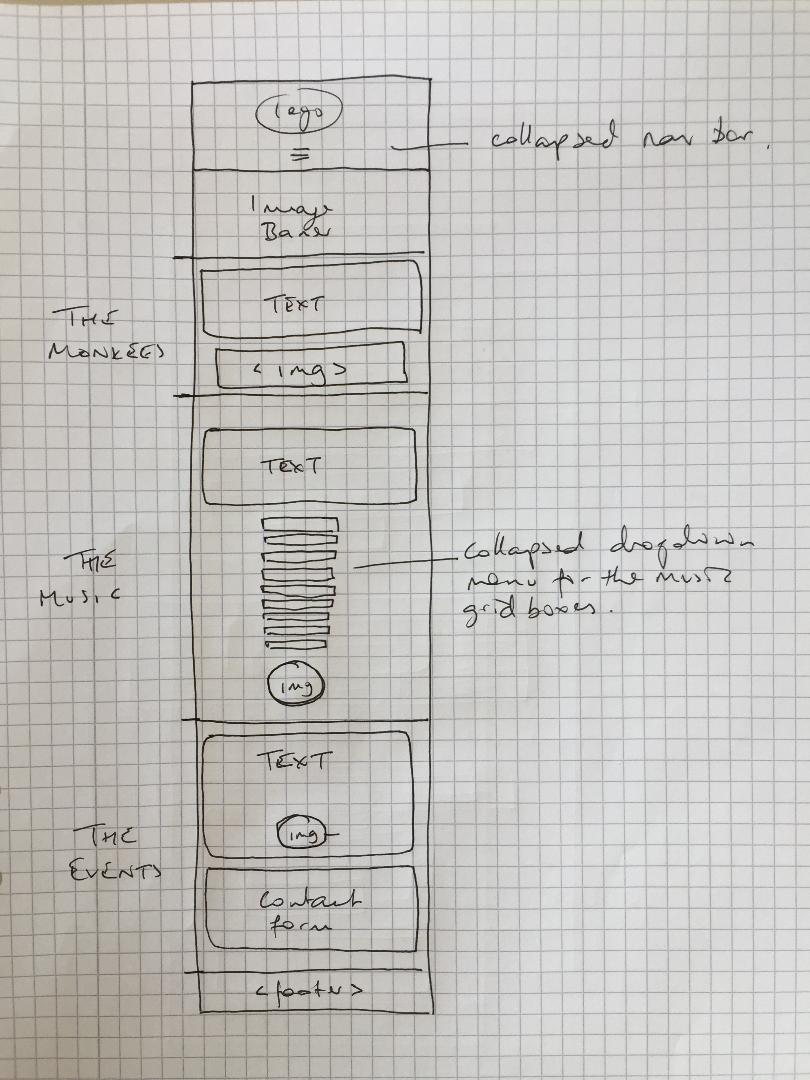 logo
collapsed nav bar.
Image
Baner
TEXT
THE
MONKEES
<img>
TEXT
THE
MUSIC
collapsed dropdown
menu for the music
grid boxes.
img
TEXT
img
THE
EVENTS
Contact
form
<footer>